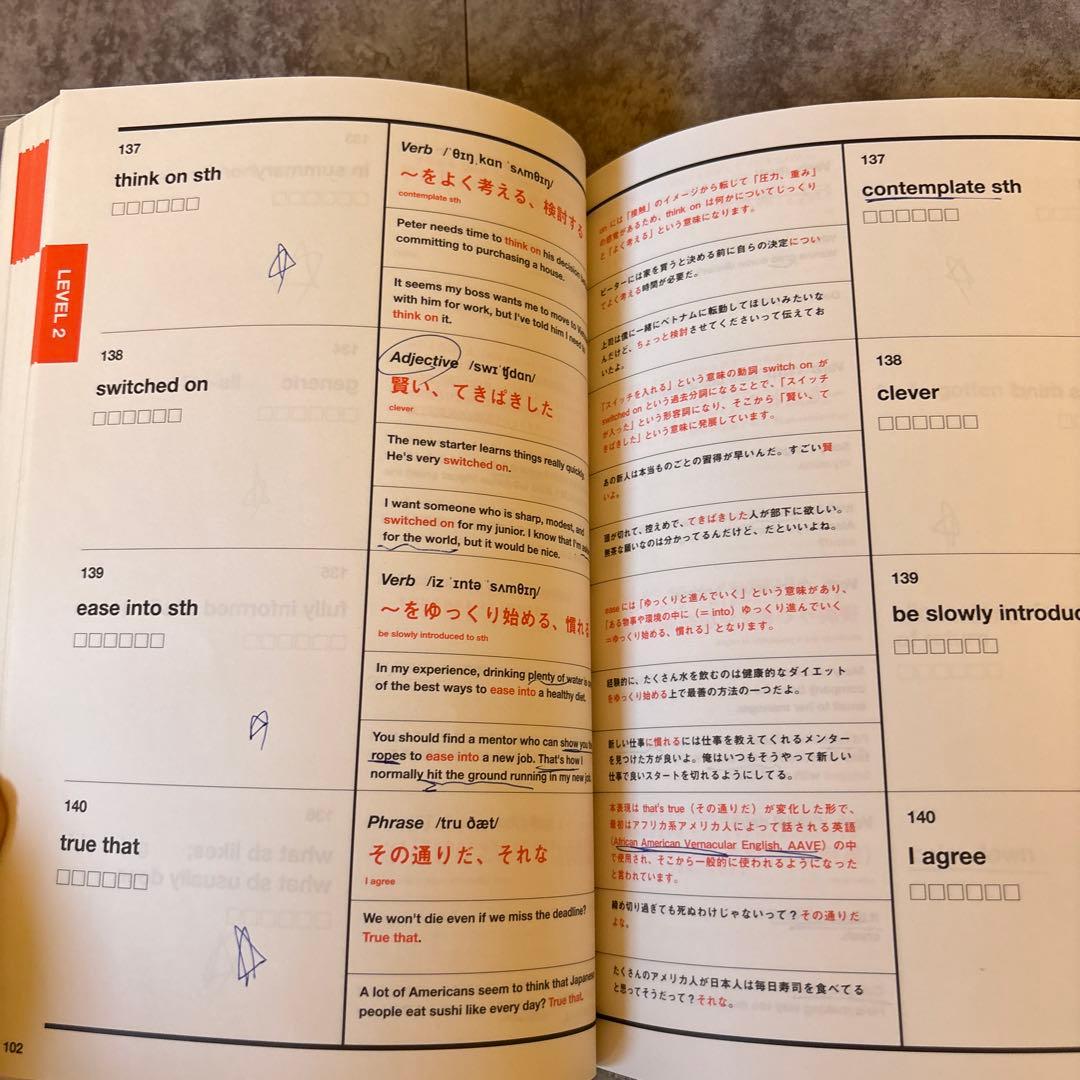 LEVEL 2
137
think on sth
Verb /ˈθɪŋˌkɑn ˈsʌmθɪŋ/
〜をよく考える、検討する
contemplate sth
Peter needs time to think on his decision
committing to purchasing a house.
It seems my boss wants me to move to
with him for work, but I've told him I need to
think on it.
138
switched on
Adjective /swɪˈʧdɑn/
賢い、てきぱきした
clever
The new starter learns things really quickly.
He's very switched on.
I want someone who is sharp, modest, and
switched on for my junior. I know that I'm
for the world, but it would be nice.
139
ease into sth
Verb /iz ˈɪntə ˈsʌmθɪŋ/
〜をゆっくり始める、慣れる
be slowly introduced to sth
In my experience, drinking plenty of water is
of the best ways to ease into a healthy diet.
You should find a mentor who can show you the
ropes to ease into a new job. That's how I
normally hit the ground running in my new job.
140
true that
Phrase /tru ðæt/
その通りだ、それな
I agree
We won't die even if we miss the deadline?
True that.
A lot of Americans seem to think that Japanese
people eat sushi like every day? True that.
102
on には「接触」のイメージから転じて「圧力、重み」
の感覚があるため、think on は何かについてじっくり
と「よく考える」という意味になります。
ピーターには家を買うと決める前に自らの決定につい
てよく考える時間が必要だ。
上司は僕に一緒にベトナムに転勤してほしいみたいな
んだけど、ちょっと検討させてくださいって伝えてお
いたよ。
137
contemplate sth
「スイッチを入れる」という意味の動詞 switch on が
switched on という過去分詞になることで、「スイッチ
が入った」という形容詞になり、そこから「賢い、て
きぱきした」という意味に発展しています。
あの新人は本当ものごとの習得が早いんだ。すごい賢
いよ。
頭が切れて、控えめで、てきぱきした人が部下に欲しい。
無茶な願いなのは分かってるんだけど、だといいよね。
138
clever
ease には「ゆっくりと進んでいく」という意味があり、
「ある物事や環境の中に（＝ into）ゆっくり進んでいく
＝ゆっくり始める、慣れる」となります。
経験的に、たくさん水を飲むのは健康的なダイエット
をゆっくり始める上で最善の方法の一つだよ。
新しい仕事に慣れるには仕事を教えてくれるメンター
を見つけた方が良いよ。俺はいつもそうやって新しい
仕事で良いスタートを切れるようにしてる。
139
be slowly introduc
本表現は that's true（その通りだ）が変化した形で、
最初はアフリカ系アメリカ人によって話される英語
（African American Vernacular English, AAVE）の中
で使用され、そこから一般的に使われるようになった
と言われています。
締め切り過ぎても死ぬわけじゃないって？その通りだ
よな。
たくさんのアメリカ人が日本人は毎日寿司を食べてる
と思ってそうだって？それな。
140
I agree